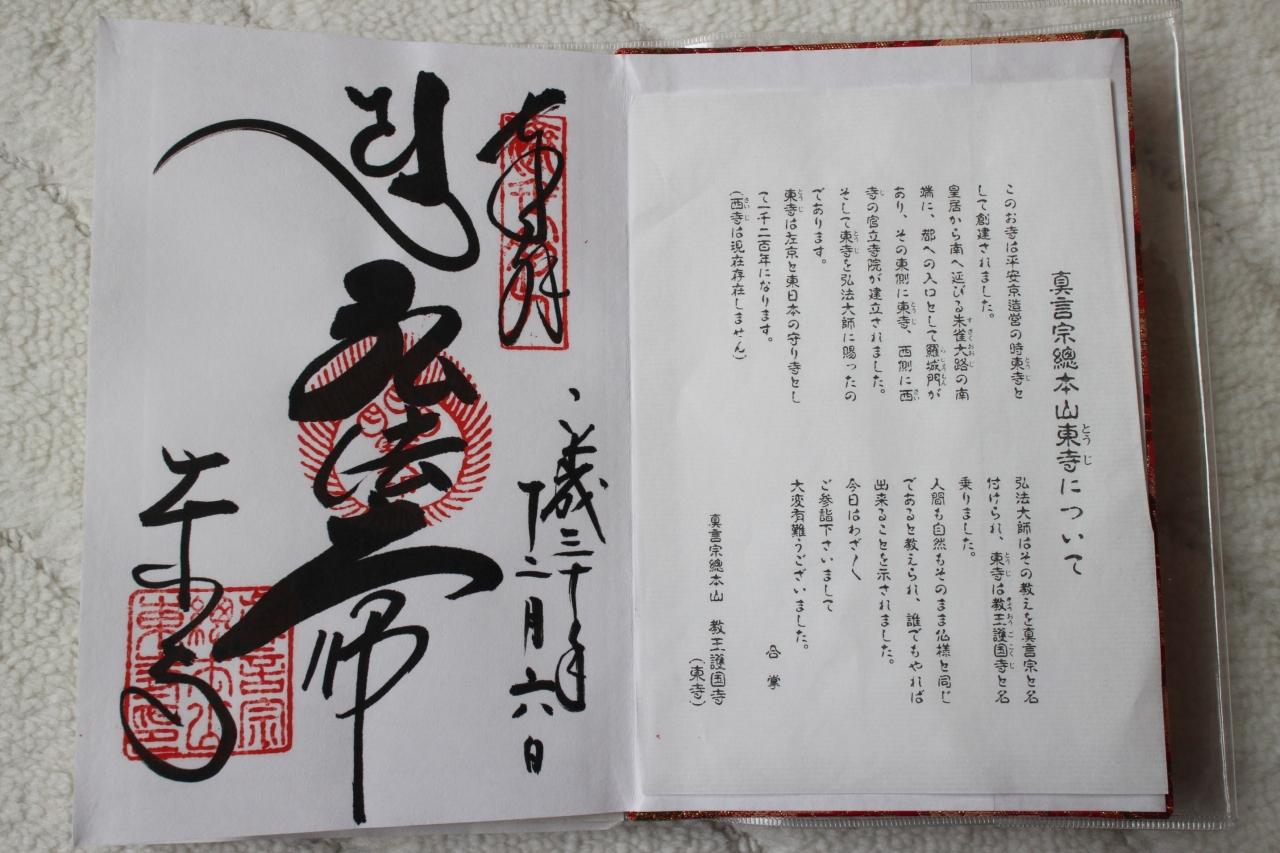 真言宗總本山東寺について
このお寺は平安京造営の時東寺と
して創建されました。
皇居から南へ延びる朱雀大路の南
端に、都への入口として羅城門が
あり、その東側に東寺、西側に西
寺の官立寺院が建立されました。
そして東寺を弘法大師に賜ったの
であります。
東寺は左京と東日本の守り寺とし
て一千二百年になります。
(西寺は現在存在しません)
弘法大師はその教えを真言宗と名
付けられ、東寺は教王護国寺と名
乗りました。
人間も自然もそのまま仏様と同じ
であると教えられ、誰でもやれば
出来ることを示されました。
今日はわざ〱
ご参詣下さいまして
大変有難うございました。
合掌
真言宗總本山 教王護国寺
(東寺)
奉拝
平成三十年
十二月六日
弘法大師
東寺
真言宗
總本山
東寺印